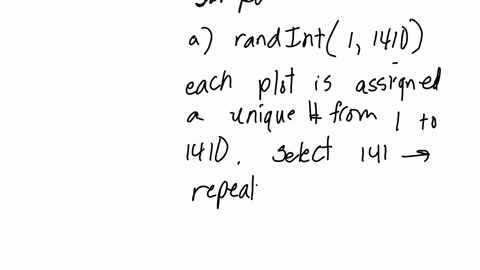 a) randInt(1, 1410)
each plot is assigned
a unique # from 1 to
1410. select 141 →
repeat